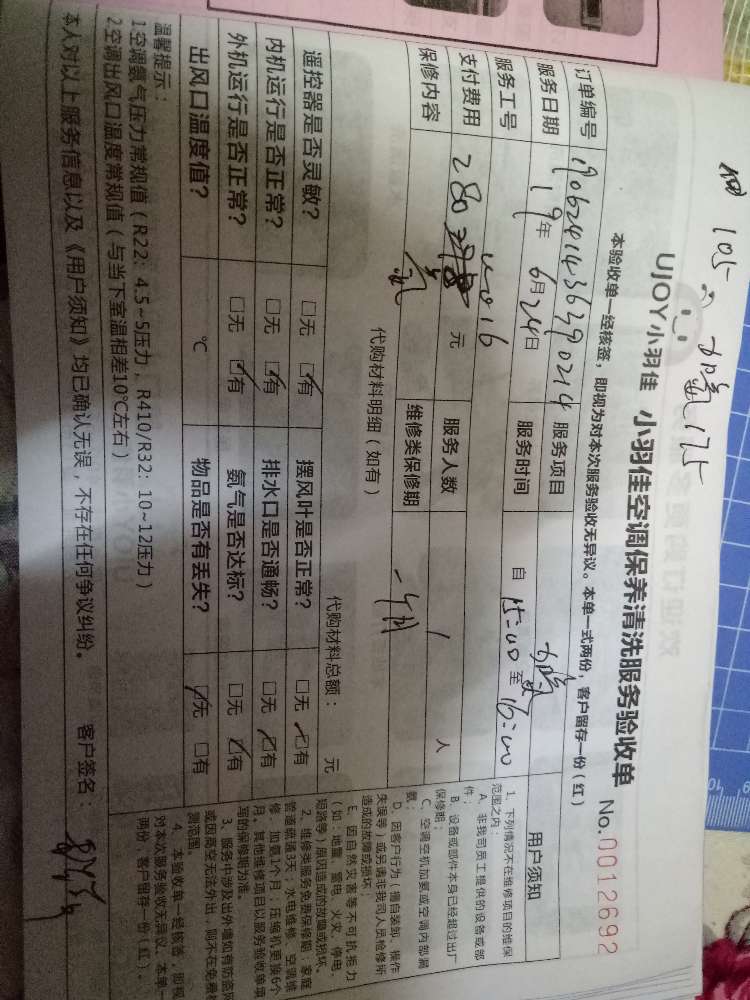 105 加氨175
UJOY小羽佳 小羽佳空调保养清洗服务验收单 No.0012692
本验收单一经核签，即视为对本次服务验收无异议。本单一式两份，客户留存一份(红)
订单编号 服务项目 加氨
服务日期 19年6月24日 服务时间 自15:00至16:00
服务工号 服务人数 1 人
支付费用 280 元
保修内容 维修类保修期 一个月
代购材料明细（如有） 代购材料总额： 元
遥控器是否灵敏？ □无 ☑有 摆风叶是否正常？ □无 ☑有
内机运行是否正常？ □无 ☑有 排水口是否通畅？ □无 ☑有
外机运行是否正常？ □无 ☑有 氨气是否达标？ □无 ☑有
出风口温度值？ ℃ 物品是否有丢失？ ☑无 □有
温馨提示：
1空调氨气压力常规值（R22：4.5~5压力，R410/R32：10~12压力）
2空调出风口温度常规值（与当下室温相差10℃左右）
本人对以上服务信息以及《用户须知》均已确认无误，不存在任何争议纠纷。 客户签名：
用户须知
1、下列情况不在维修项目的维保
范围之内：
A、非我司员工提供的设备或部
件；
B、设备或部件本身已经超过出厂
保修期；
C、空调空机加氨或空调内部漏
氨；
D、因客户行为（擅自装卸、操作
失误等）或另请非我司人员检修所
造成的故障或损坏
E、因自然灾害等不可抗拒力
（如：地震、雷电、火灾、停电、
短路等）原因造成的故障或损坏。
2、维修类服务免费保修期：家庭
管道疏通3天；水电维修、空调维
修、加氨1个月；压缩机更换6个
月。其他维修项目以服务验收单填
写的保修期为准
3、服务中涉及出外墙如有防盗网
或因高空无法外出，则不在免费检
测范围。
4、本验收单一经核签，即视
对本次服务验收无异议。本单一
两份，客户留存一份（红）。